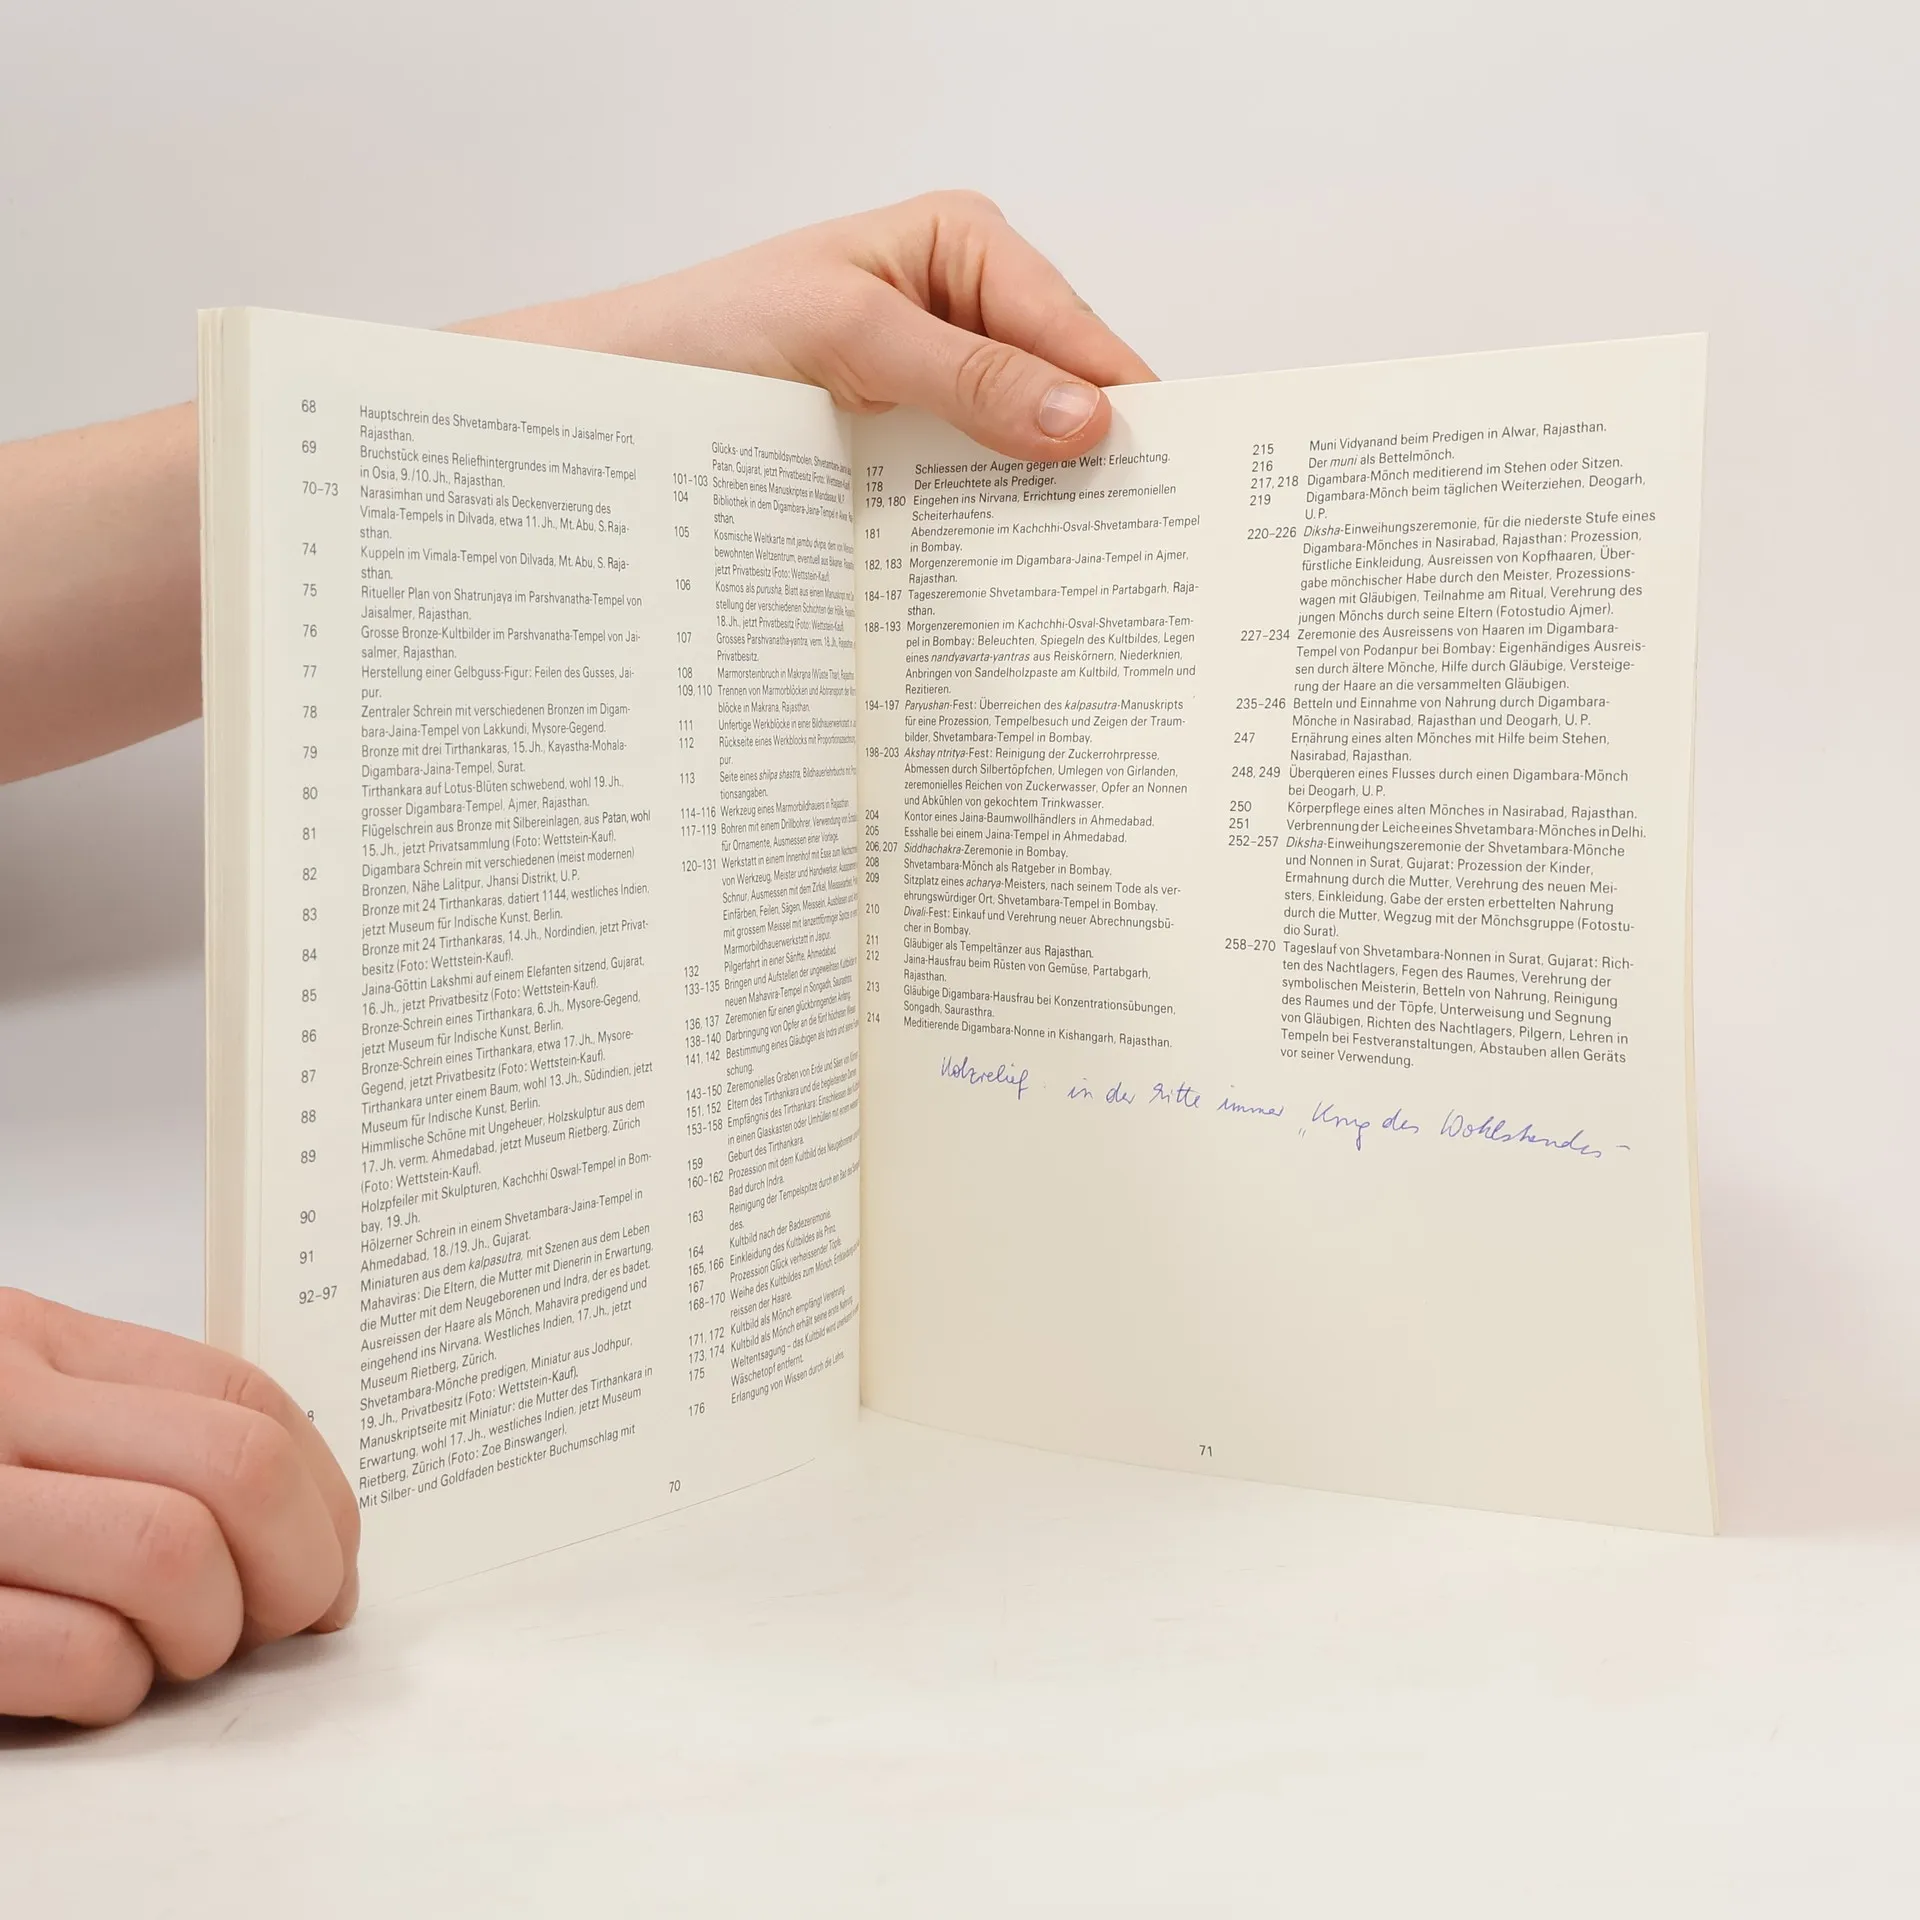 68 Hauptschrein des Shvetambara-Tempels in Jaisalmer Fort,
Rajasthan.
69 Bruchstück eines Reliefhintergrundes im Mahavira-Tempel
in Osia, 9./10. Jh., Rajasthan.
70–73 Narasimhan und Sarasvati als Deckenverzierung des
Vimala-Tempels in Dilvada, etwa 11. Jh., Mt. Abu, S. Raja-
sthan.
74 Kuppeln im Vimala-Tempel von Dilvada, Mt. Abu, S. Raja-
sthan.
75 Ritueller Plan von Shatrunjaya im Parshvanatha-Tempel von
Jaisalmer, Rajasthan.
76 Grosse Bronze-Kultbilder im Parshvanatha-Tempel von Jai-
salmer, Rajasthan.
77 Herstellung einer Gelbguss-Figur: Feilen des Gusses, Jai-
pur.
78 Zentraler Schrein mit verschiedenen Bronzen im Digam-
bara-Jaina-Tempel von Lakkundi, Mysore-Gegend.
79 Bronze mit drei Tirthankaras, 15. Jh., Kayastha-Mohala-
Digambara-Jaina-Tempel, Surat.
80 Tirthankara auf Lotus-Blüten schwebend, wohl 19. Jh.,
grosser Digambara-Tempel, Ajmer, Rajasthan.
81 Flügelschrein aus Bronze mit Silbereinlagen, aus Patan, wohl
15. Jh., jetzt Privatsammlung (Foto: Wettstein-Kauf).
82 Digambara Schrein mit verschiedenen (meist modernen)
Bronzen, Nähe Lalitpur, Jhansi Distrikt, U. P.
83 Bronze mit 24 Tirthankaras, datiert 1144, westliches Indien,
jetzt Museum für Indische Kunst, Berlin.
84 Bronze mit 24 Tirthankaras, 14. Jh., Nordindien, jetzt Privat-
besitz (Foto: Wettstein-Kauf).
85 Jaina-Göttin Lakshmi auf einem Elefanten sitzend, Gujarat,
16. Jh., jetzt Privatbesitz (Foto: Wettstein-Kauf).
86 Bronze-Schrein eines Tirthankara, 6. Jh., Mysore-Gegend,
jetzt Museum für Indische Kunst, Berlin.
87 Bronze-Schrein eines Tirthankara, etwa 17. Jh., Mysore-
Gegend, jetzt Privatbesitz (Foto: Wettstein-Kauf).
88 Tirthankara unter einem Baum, wohl 13. Jh., Südindien, jetzt
Museum für Indische Kunst, Berlin.
89 Himmlische Schöne mit Ungeheuer, Holzskulptur aus dem
17. Jh. verm. Ahmedabad, jetzt Museum Rietberg, Zürich
(Foto: Wettstein-Kauf).
90 Holzpfeiler mit Skulpturen, Kachchhi Oswal-Tempel in Bom-
bay, 19. Jh.
91 Hölzerner Schrein in einem Shvetambara-Jaina-Tempel in
Ahmedabad, 18./19. Jh., Gujarat.
92–97 Miniaturen aus dem kalpasutra, mit Szenen aus dem Leben
Mahaviras: Die Eltern, die Mutter mit Dienerin in Erwartung,
die Mutter mit dem Neugeborenen und Indra, der es badet,
Ausreissen der Haare als Mönch, Mahavira predigend und
eingehend ins Nirvana. Westliches Indien, 17. Jh., jetzt
Museum Rietberg, Zürich.
Shvetambara-Mönche predigen, Miniatur aus Jodhpur,
19. Jh., Privatbesitz (Foto: Wettstein-Kauf).
8 Manuskriptseite mit Miniatur: die Mutter des Tirthankara in
Erwartung, wohl 17. Jh., westliches Indien, jetzt Museum
Rietberg, Zürich (Foto: Zoe Binswanger).
Mit Silber- und Goldfaden bestickter Buchumschlag mit
Glücks- und Traumbildsymbolen, Shvetambara-Jaina
Patan, Gujarat, jetzt Privatbesitz (Foto: Wettstein-Kauf).
101–103 Schreiben eines Manuskriptes in Mandasaur, M. P.
104 Bibliothek in dem Digambara-Jaina-Tempel in Alwar,
sthan.
105 Kosmische Weltkarte mit jambu dvipa, dem von
bewohnten Weltzentrum, eventuell aus Bikaner,
jetzt Privatbesitz (Foto: Wettstein-Kauf).
106 Kosmos als purusha, Blatt aus einem Manuskript mit
stellung der verschiedenen Schichten der Hölle,
18. Jh., jetzt Privatbesitz (Foto: Wettstein-Kauf).
107 Grosses Parshvanatha-yantra, verm. 16. Jh.,
Privatbesitz.
108 Marmorsteinbruch in Makrana (Wüste Thar),
109, 110 Trennen von Marmorblöcken und Abtransport der
blöcke in Makrana, Rajasthan.
111 Unfertige Werkblöcke in einer Bildhauerwerkstatt in
112 Rückseite eines Werkblocks mit Proportionszeichnung,
pur.
113 Seite eines shilpa shastra, Bildhauerlehrbuchs mit
tionsangaben.
114–116 Werkzeug eines Marmorbildhauers in Rajasthan.
117–119 Bohren mit einem Drillbohrer, Verwendung von
für Ornamente, Ausmessen einer Vorlage.
120–131 Werkstatt in einem Innenhof mit Esse zum
von Werkzeug, Meister und Handwerker,
Schnur, Ausmessen mit dem Zirkel,
Einfärben, Feilen, Sägen, Meisseln,
mit grossem Meissel mit lanzettförmiger Spitze in
Marmorbildhauerwerkstatt in Jaipur.
132 Pilgerfahrt in einer Sänfte, Ahmedabad.
133–135 Bringen und Aufstellen der ungeweihten Kultbilder
neuen Mahavira-Tempel in Songadh, Saurasthra.
136, 137 Zeremonien für einen glückbringenden Anfang.
138–140 Darbringung von Opfer an die fünf höchsten
141, 142 Bestimmung eines Gläubigen als Indra und
schung.
143–150 Zeremonielles Graben von Erde und Säen von
151, 152 Eltern des Tirthankara und die begleitenden
153–158 Empfängnis des Tirthankara: Einschliessen
in einen Glaskasten oder Umhüllen mit einem
Geburt des Tirthankara.
159 Prozession mit dem Kultbild des Neugeborenen
160–162 Bad durch Indra.
Reinigung der Tempelspitze durch ein Bad
163 des.
164 Kultbild nach der Badezeremonie.
165, 166 Einkleidung des Kultbildes als Prinz.
167 Prozession Glück verheissender Töpfe.
168–170 Weihe des Kultbildes zum Mönch,
reissen der Haare.
171, 172 Kultbild als Mönch empfängt Verehrung.
173, 174 Kultbild als Mönch erhält seine erste Nahrung.
175 Weltentsagung – das Kultbild wird
Wäschetopf entfernt.
176 Erlangung von Wissen durch die Lehre.
70
177 Schliessen der Augen gegen die Welt: Erleuchtung.
178 Der Erleuchtete als Prediger.
179, 180 Eingehen ins Nirvana, Errichtung eines zeremoniellen
Scheiterhaufens.
181 Abendzeremonie im Kachchhi-Osval-Shvetambara-Tempel
in Bombay.
182, 183 Morgenzeremonie im Digambara-Jaina-Tempel in Ajmer,
Rajasthan.
184–187 Tageszeremonie Shvetambara-Tempel in Partabgarh, Raja-
sthan.
188–193 Morgenzeremonien im Kachchhi-Osval-Shvetambara-Tem-
pel in Bombay: Beleuchten, Spiegeln des Kultbildes, Legen
eines nandyavarta-yantras aus Reiskörnern, Niederknien,
Anbringen von Sandelholzpaste am Kultbild, Trommeln und
Rezitieren.
194–197 Paryushan-Fest: Überreichen des kalpasutra-Manuskripts
für eine Prozession, Tempelbesuch und Zeigen der Traum-
bilder, Shvetambara-Tempel in Bombay.
198–203 Akshay ntritya-Fest: Reinigung der Zuckerrohrpresse,
Abmessen durch Silbertöpfchen, Umlegen von Girlanden,
zeremonielles Reichen von Zuckerwasser, Opfer an Nonnen
und Abkühlen von gekochtem Trinkwasser.
204 Kontor eines Jaina-Baumwollhändlers in Ahmedabad.
205 Esshalle bei einem Jaina-Tempel in Ahmedabad.
206, 207 Siddhachakra-Zeremonie in Bombay.
208 Shvetambara-Mönch als Ratgeber in Bombay.
209 Sitzplatz eines acharya-Meisters, nach seinem Tode als ver-
ehrungswürdiger Ort, Shvetambara-Tempel in Bombay.
210 Divali-Fest: Einkauf und Verehrung neuer Abrechnungsbü-
cher in Bombay.
211 Gläubiger als Tempeltänzer aus Rajasthan.
212 Jaina-Hausfrau beim Rüsten von Gemüse, Partabgarh,
Rajasthan.
213 Gläubige Digambara-Hausfrau bei Konzentrationsübungen,
Songadh, Saurasthra.
214 Meditierende Digambara-Nonne in Kishangarh, Rajasthan.
215 Muni Vidyanand beim Predigen in Alwar, Rajasthan.
216 Der muni als Bettelmönch.
217, 218 Digambara-Mönch meditierend im Stehen oder Sitzen.
219 Digambara-Mönch beim täglichen Weiterziehen, Deogarh,
U. P.
220–226 Diksha-Einweihungszeremonie, für die niederste Stufe eines
Digambara-Mönches in Nasirabad, Rajasthan: Prozession,
fürstliche Einkleidung, Ausreissen von Kopfhaaren, Über-
gabe mönchischer Habe durch den Meister, Prozessions-
wagen mit Gläubigen, Teilnahme am Ritual, Verehrung des
jungen Mönchs durch seine Eltern (Fotostudio Ajmer).
227–234 Zeremonie des Ausreissens von Haaren im Digambara-
Tempel von Podanpur bei Bombay: Eigenhändiges Ausreis-
sen durch ältere Mönche, Hilfe durch Gläubige, Versteige-
rung der Haare an die versammelten Gläubigen.
235–246 Betteln und Einnahme von Nahrung durch Digambara-
Mönche in Nasirabad, Rajasthan und Deogarh, U. P.
247 Ernährung eines alten Mönches mit Hilfe beim Stehen,
Nasirabad, Rajasthan.
248, 249 Überqueren eines Flusses durch einen Digambara-Mönch
bei Deogarh, U. P.
250 Körperpflege eines alten Mönches in Nasirabad, Rajasthan.
251 Verbrennung der Leiche eines Shvetambara-Mönches in Delhi.
252–257 Diksha-Einweihungszeremonie der Shvetambara-Mönche
und Nonnen in Surat, Gujarat: Prozession der Kinder,
Ermahnung durch die Mutter, Verehrung des neuen Mei-
sters, Einkleidung, Gabe der ersten erbettelten Nahrung
durch die Mutter, Wegzug mit der Mönchsgruppe (Fotostu-
dio Surat).
258–270 Tageslauf von Shvetambara-Nonnen in Surat, Gujarat: Rich-
ten des Nachtlagers, Fegen des Raumes, Verehrung der
symbolischen Meisterin, Betteln von Nahrung, Reinigung
des Raumes und der Töpfe, Unterweisung und Segnung
von Gläubigen, Richten des Nachtlagers, Pilgern, Lehren in
Tempeln bei Festveranstaltungen, Abstauben allen Geräts
vor seiner Verwendung.
Holzrelief. in der Mitte immer „Krug des Wohlstandes –
71